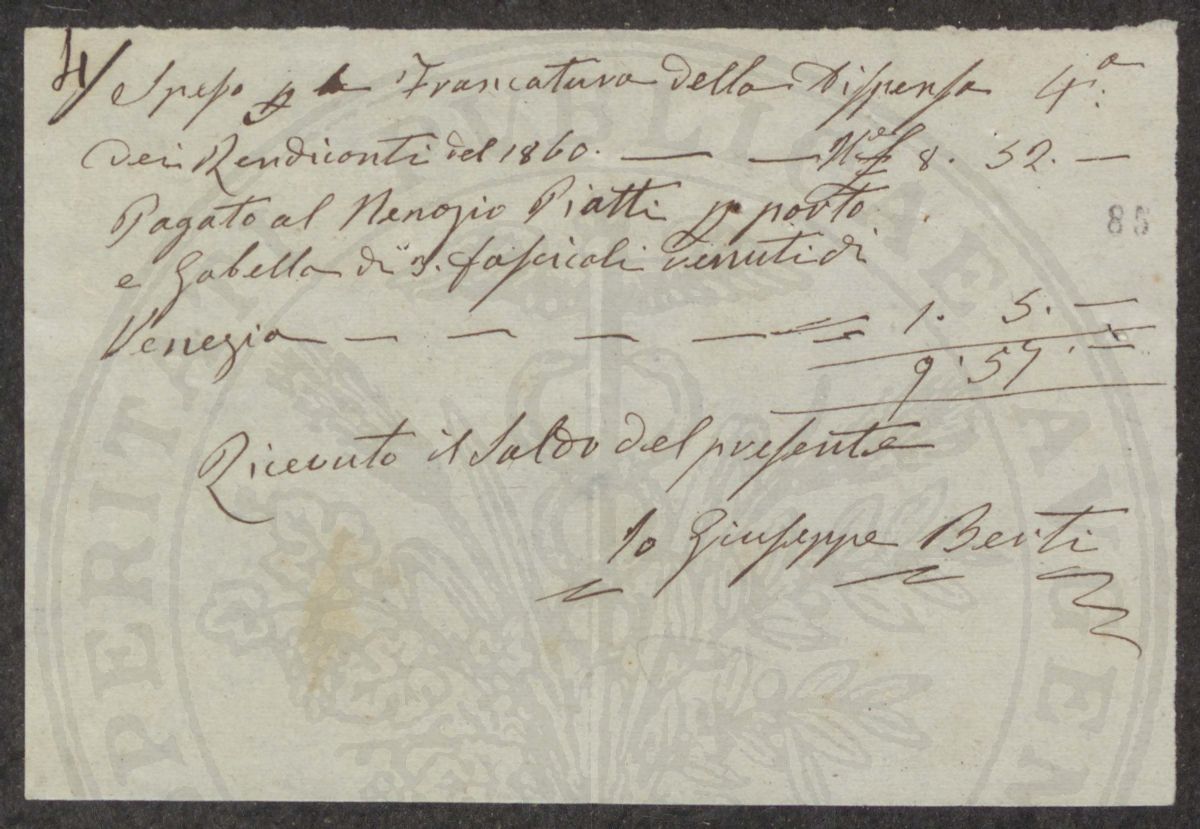 4/
Speso p la Francatura della Dispensa 4.a
dei Rendiconti del 1860. — — 8. 52. —
Pagato al Negozio Piatti p porto
85
e Gabella di 3. fascicoli venuti di
Venezia — — — — 1. 5. —
9. 57. —
Ricevuto il Saldo del presente
Io Giuseppe Berti
PERITATI PUBLICAE AVGEN